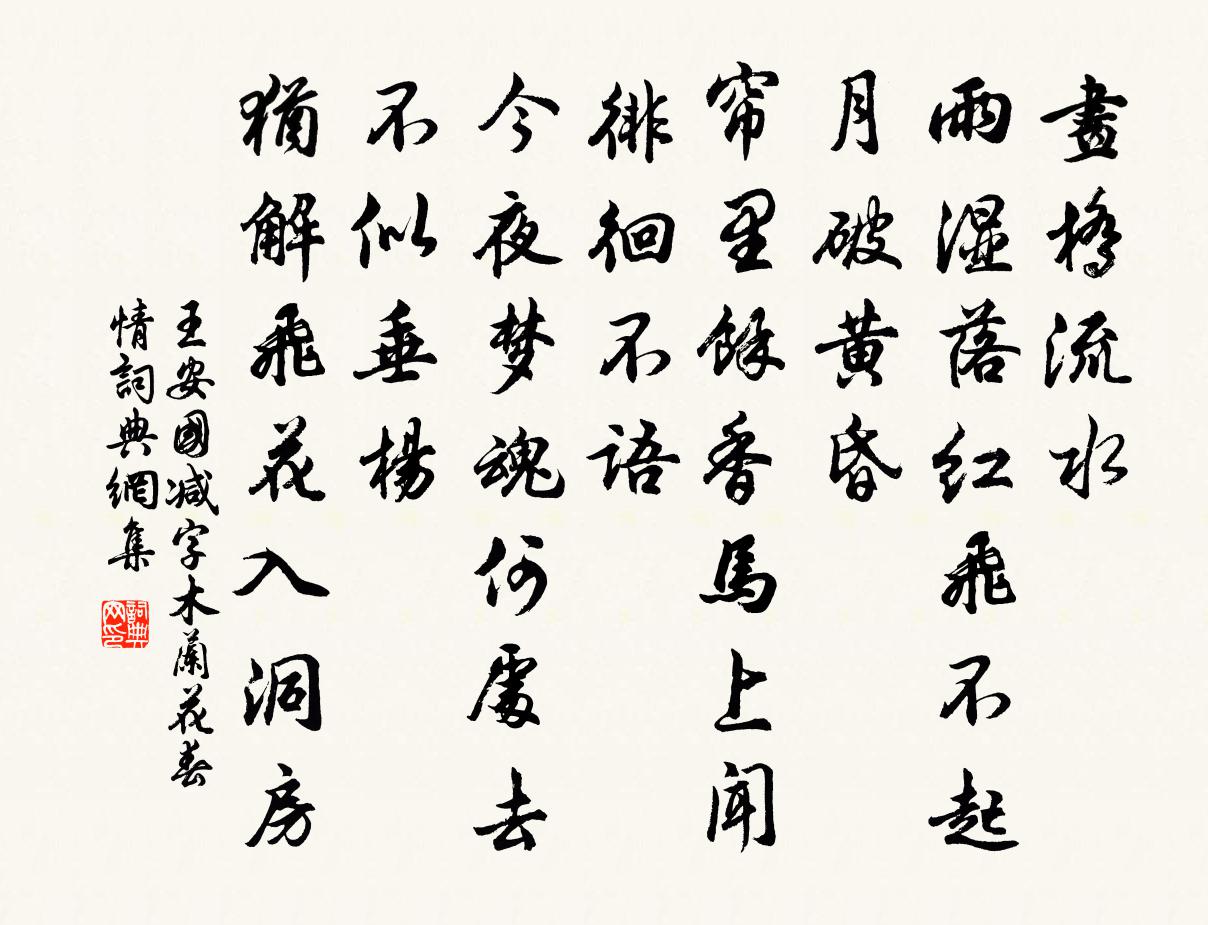 畫橋流水
雨濕落红飛不起
月破黄昏
帘里餘香馬上聞
徘徊不語
今夜梦魂何處去
不似垂楊
猶解飛花入洞房
王安國减字木蘭花春
情詞典網集
詞典网印